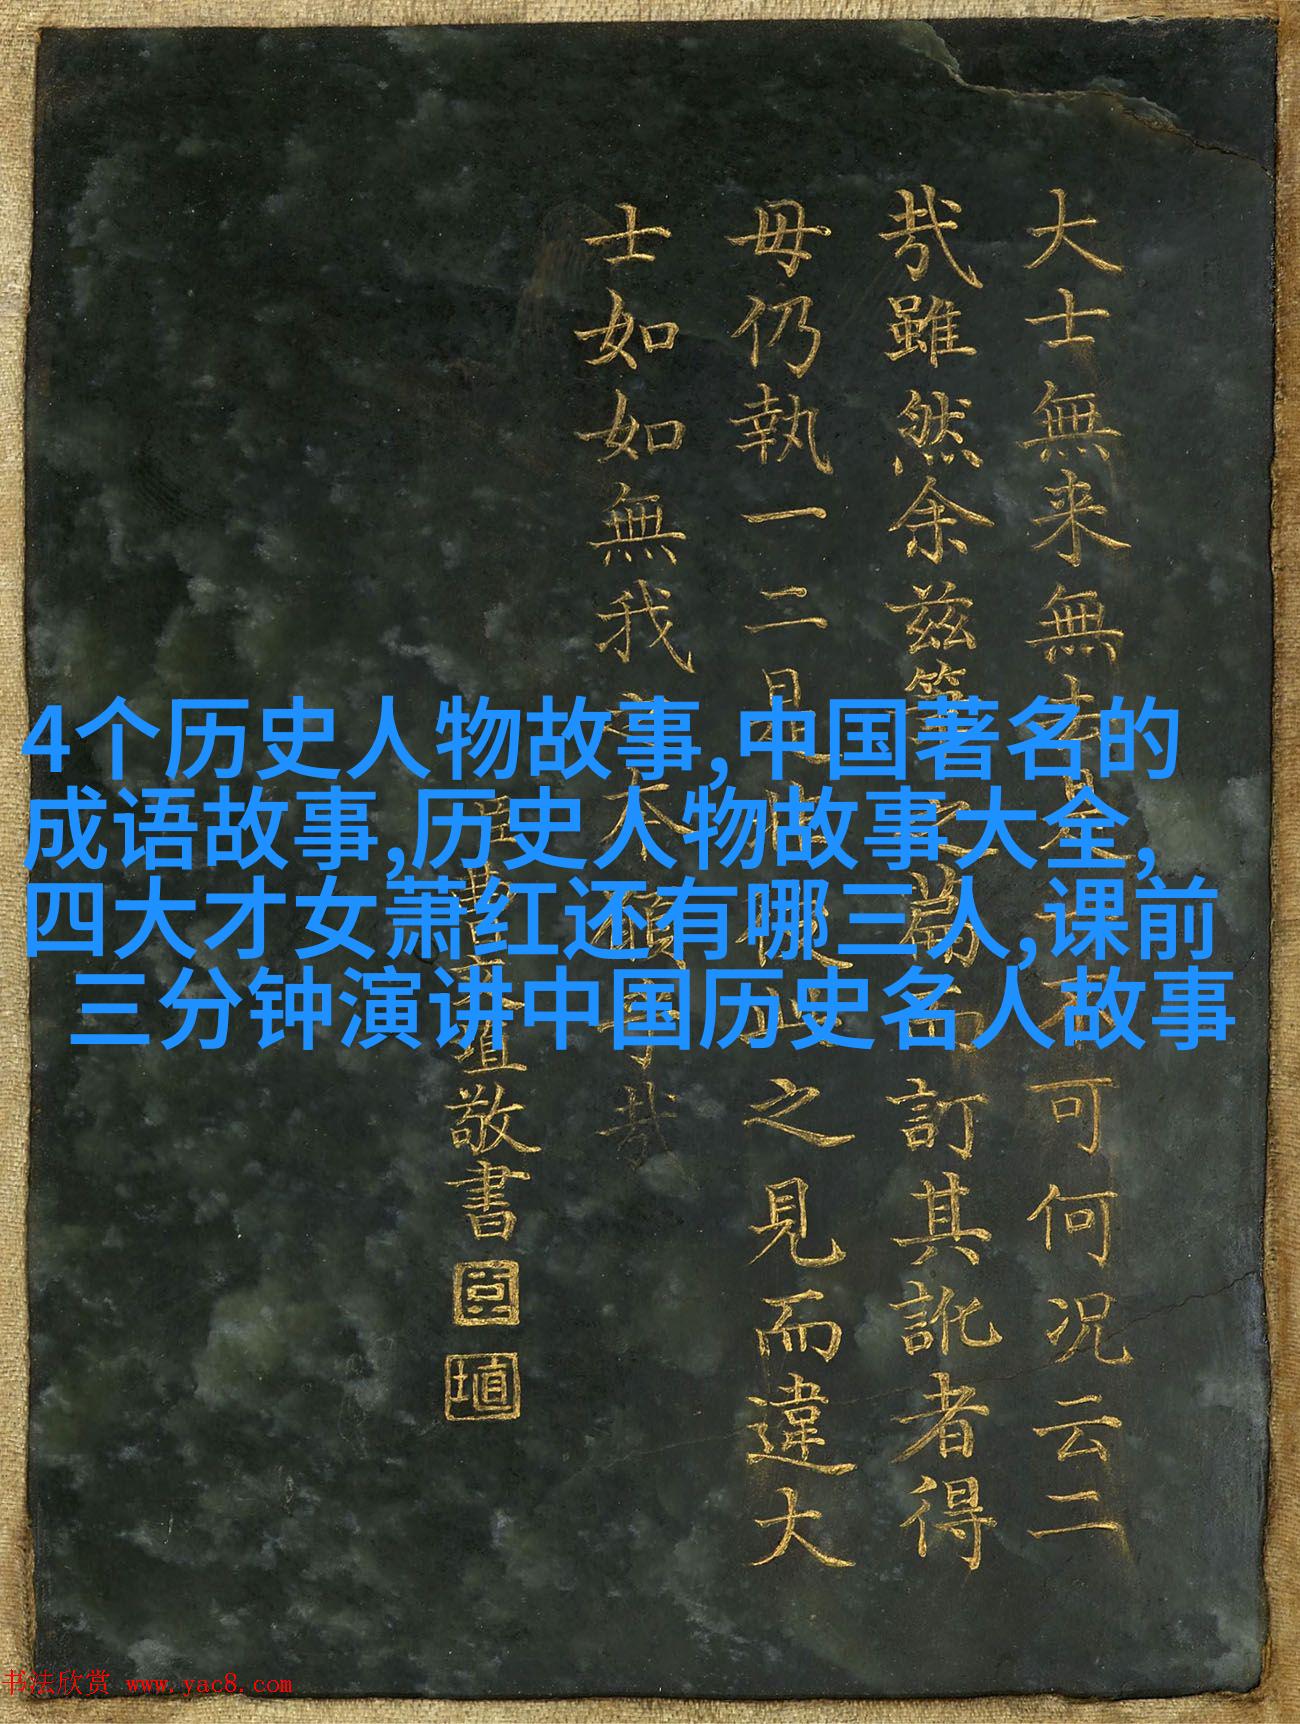 大士無来無去可何况云二
哉雖然余兹訂其訛者得
毋仍執一二是之見而違大
士如如無我本哉
埴敬書
臣
埴
4个历史人物故事,中国著名的
成语故事,历史人物故事大全,
四大才女萧红还有哪三人,课前
三分钟演讲中国历史名人故事
书法欣赏 www.yac8.com